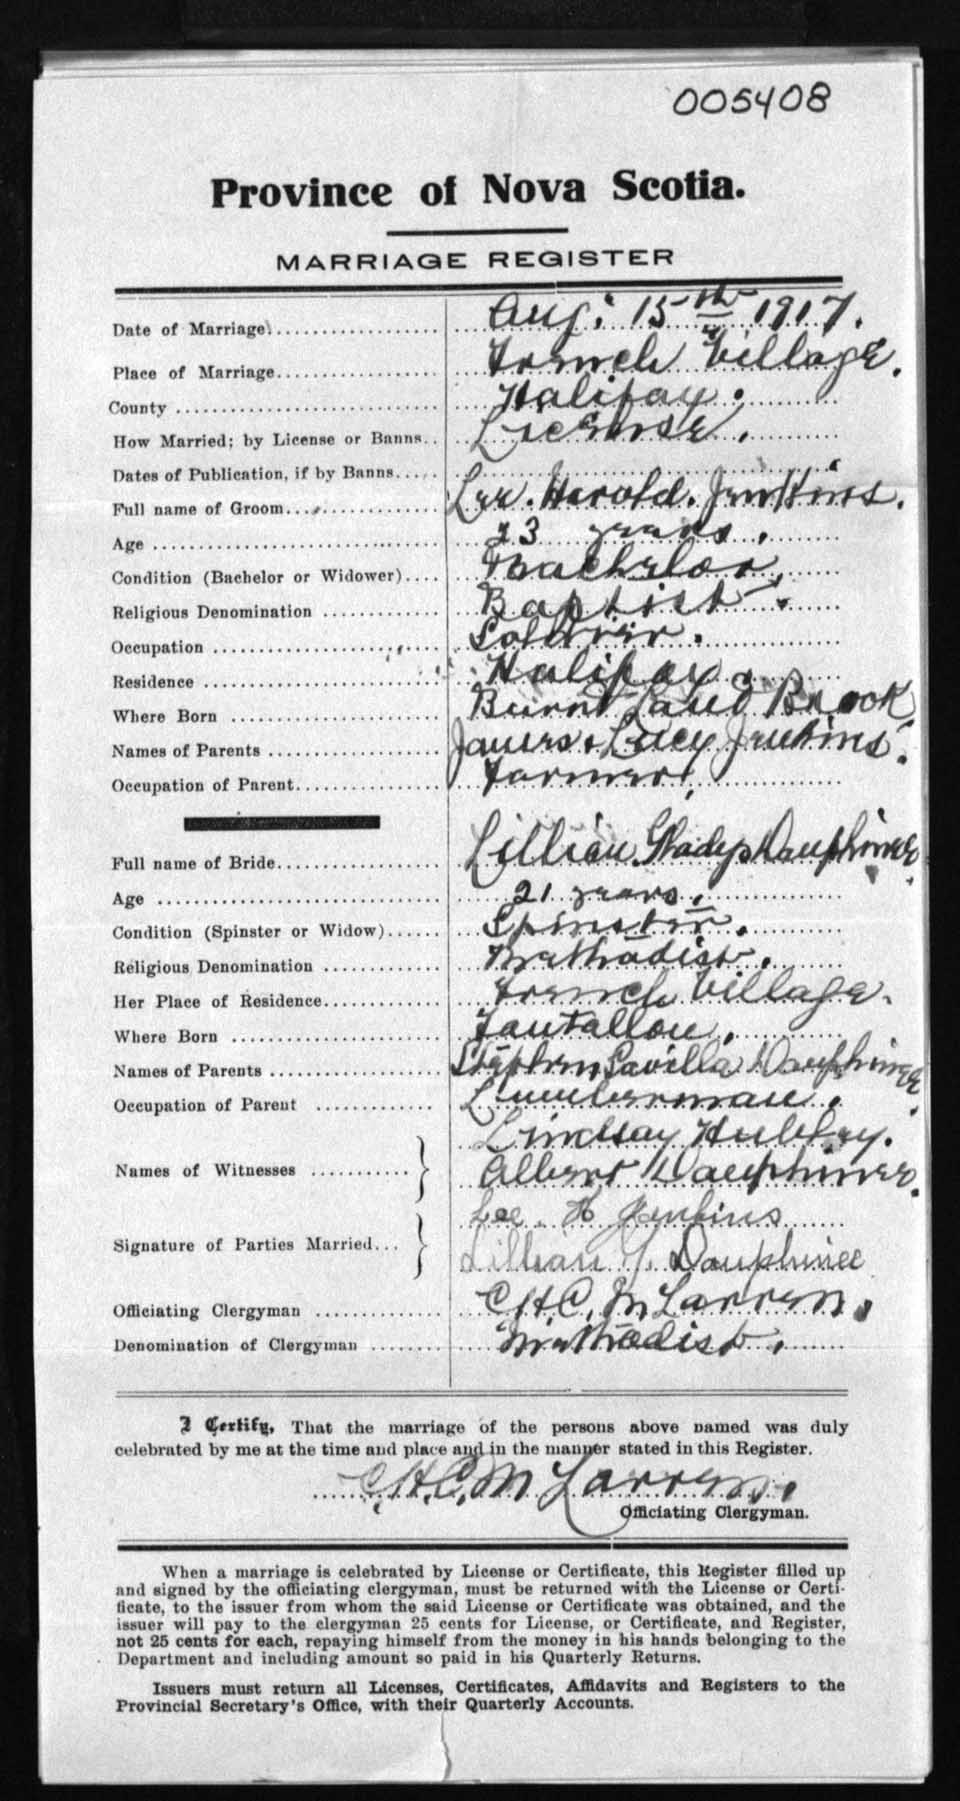 005408
Province of Nova Scotia.
MARRIAGE REGISTER
Date of Marriage Aug. 15th 1917.
Place of Marriage French Village.
County Halifax.
How Married; by License or Banns License.
Dates of Publication, if by Banns
Full name of Groom Lee. Harold. Jenkins.
Age 23 years.
Condition (Bachelor or Widower) Bachelor.
Religious Denomination Baptist.
Occupation Soldier.
Residence Halifax.
Where Born Burnt Land Brook.
Names of Parents James & Lucy Jenkins.
Occupation of Parent Farmer.
Full name of Bride Lillian Gladys Dauphinee.
Age 21 years.
Condition (Spinster or Widow) Spinster.
Religious Denomination Methodist.
Her Place of Residence French Village.
Where Born Tantallon.
Names of Parents Stephen Savilla Dauphinee.
Occupation of Parent Lumberman.
Lindsay Hubley.
Names of Witnesses Albert Dauphinee.
Lee. H Jenkins
Signature of Parties Married Lillian G. Dauphinee
Officiating Clergyman C.H.C. McLarren.
Denomination of Clergyman Methodist.
I Certify, That the marriage of the persons above named was duly
celebrated by me at the time and place and in the manner stated in this Register.
C.H.C. McLarren.
Officiating Clergyman.
When a marriage is celebrated by License or Certificate, this Register filled up
and signed by the officiating clergyman, must be returned with the License or Certi-
ficate, to the issuer from whom the said License or Certificate was obtained, and the
issuer will pay to the clergyman 25 cents for License, or Certificate, and Register,
not 25 cents for each, repaying himself from the money in his hands belonging to the
Department and including amount so paid in his Quarterly Returns.
Issuers must return all Licenses, Certificates, Affidavits and Registers to the
Provincial Secretary's Office, with their Quarterly Accounts.